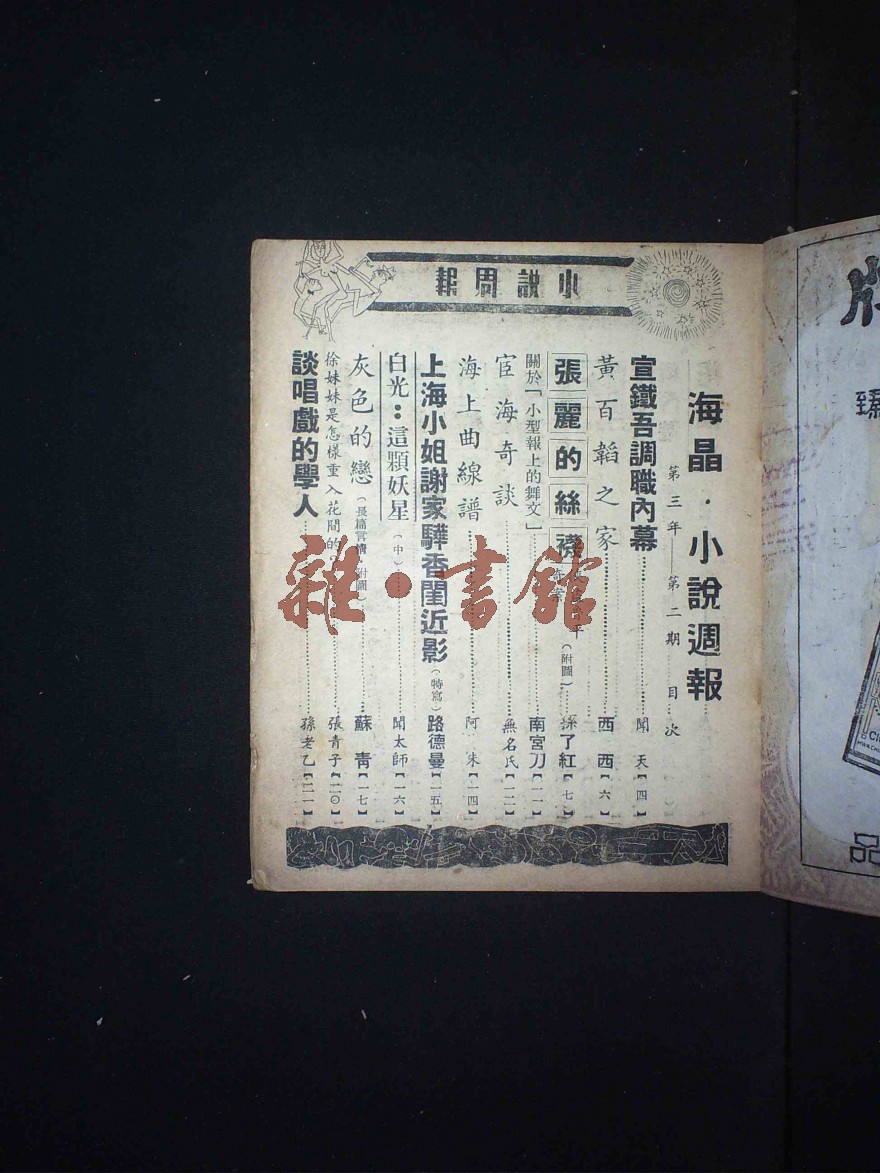 小說周報
海晶·小說週報
第三年——第二期 目次
宣鐵吾調職內幕……聞天【四】
黃百韜之家……西西【六】
張麗的絲襪(附圖)……孫了紅【七】
關於「小型報上的舞文」……南宮刀【一一】
宦海奇談……無名氏【一二】
海上曲線譜……阿 朱【一四】
上海小姐謝家驊香閨近影(特寫)路德曼【一五】
白光:這顆妖星(中)……聞太師【一六】
灰色的戀(長篇言情 附圖)……蘇青【一七】
徐妹妹是怎樣重入花間的……張青子【二〇】
談唱戲的學人……孫老乙【二一】
雜·書館
品